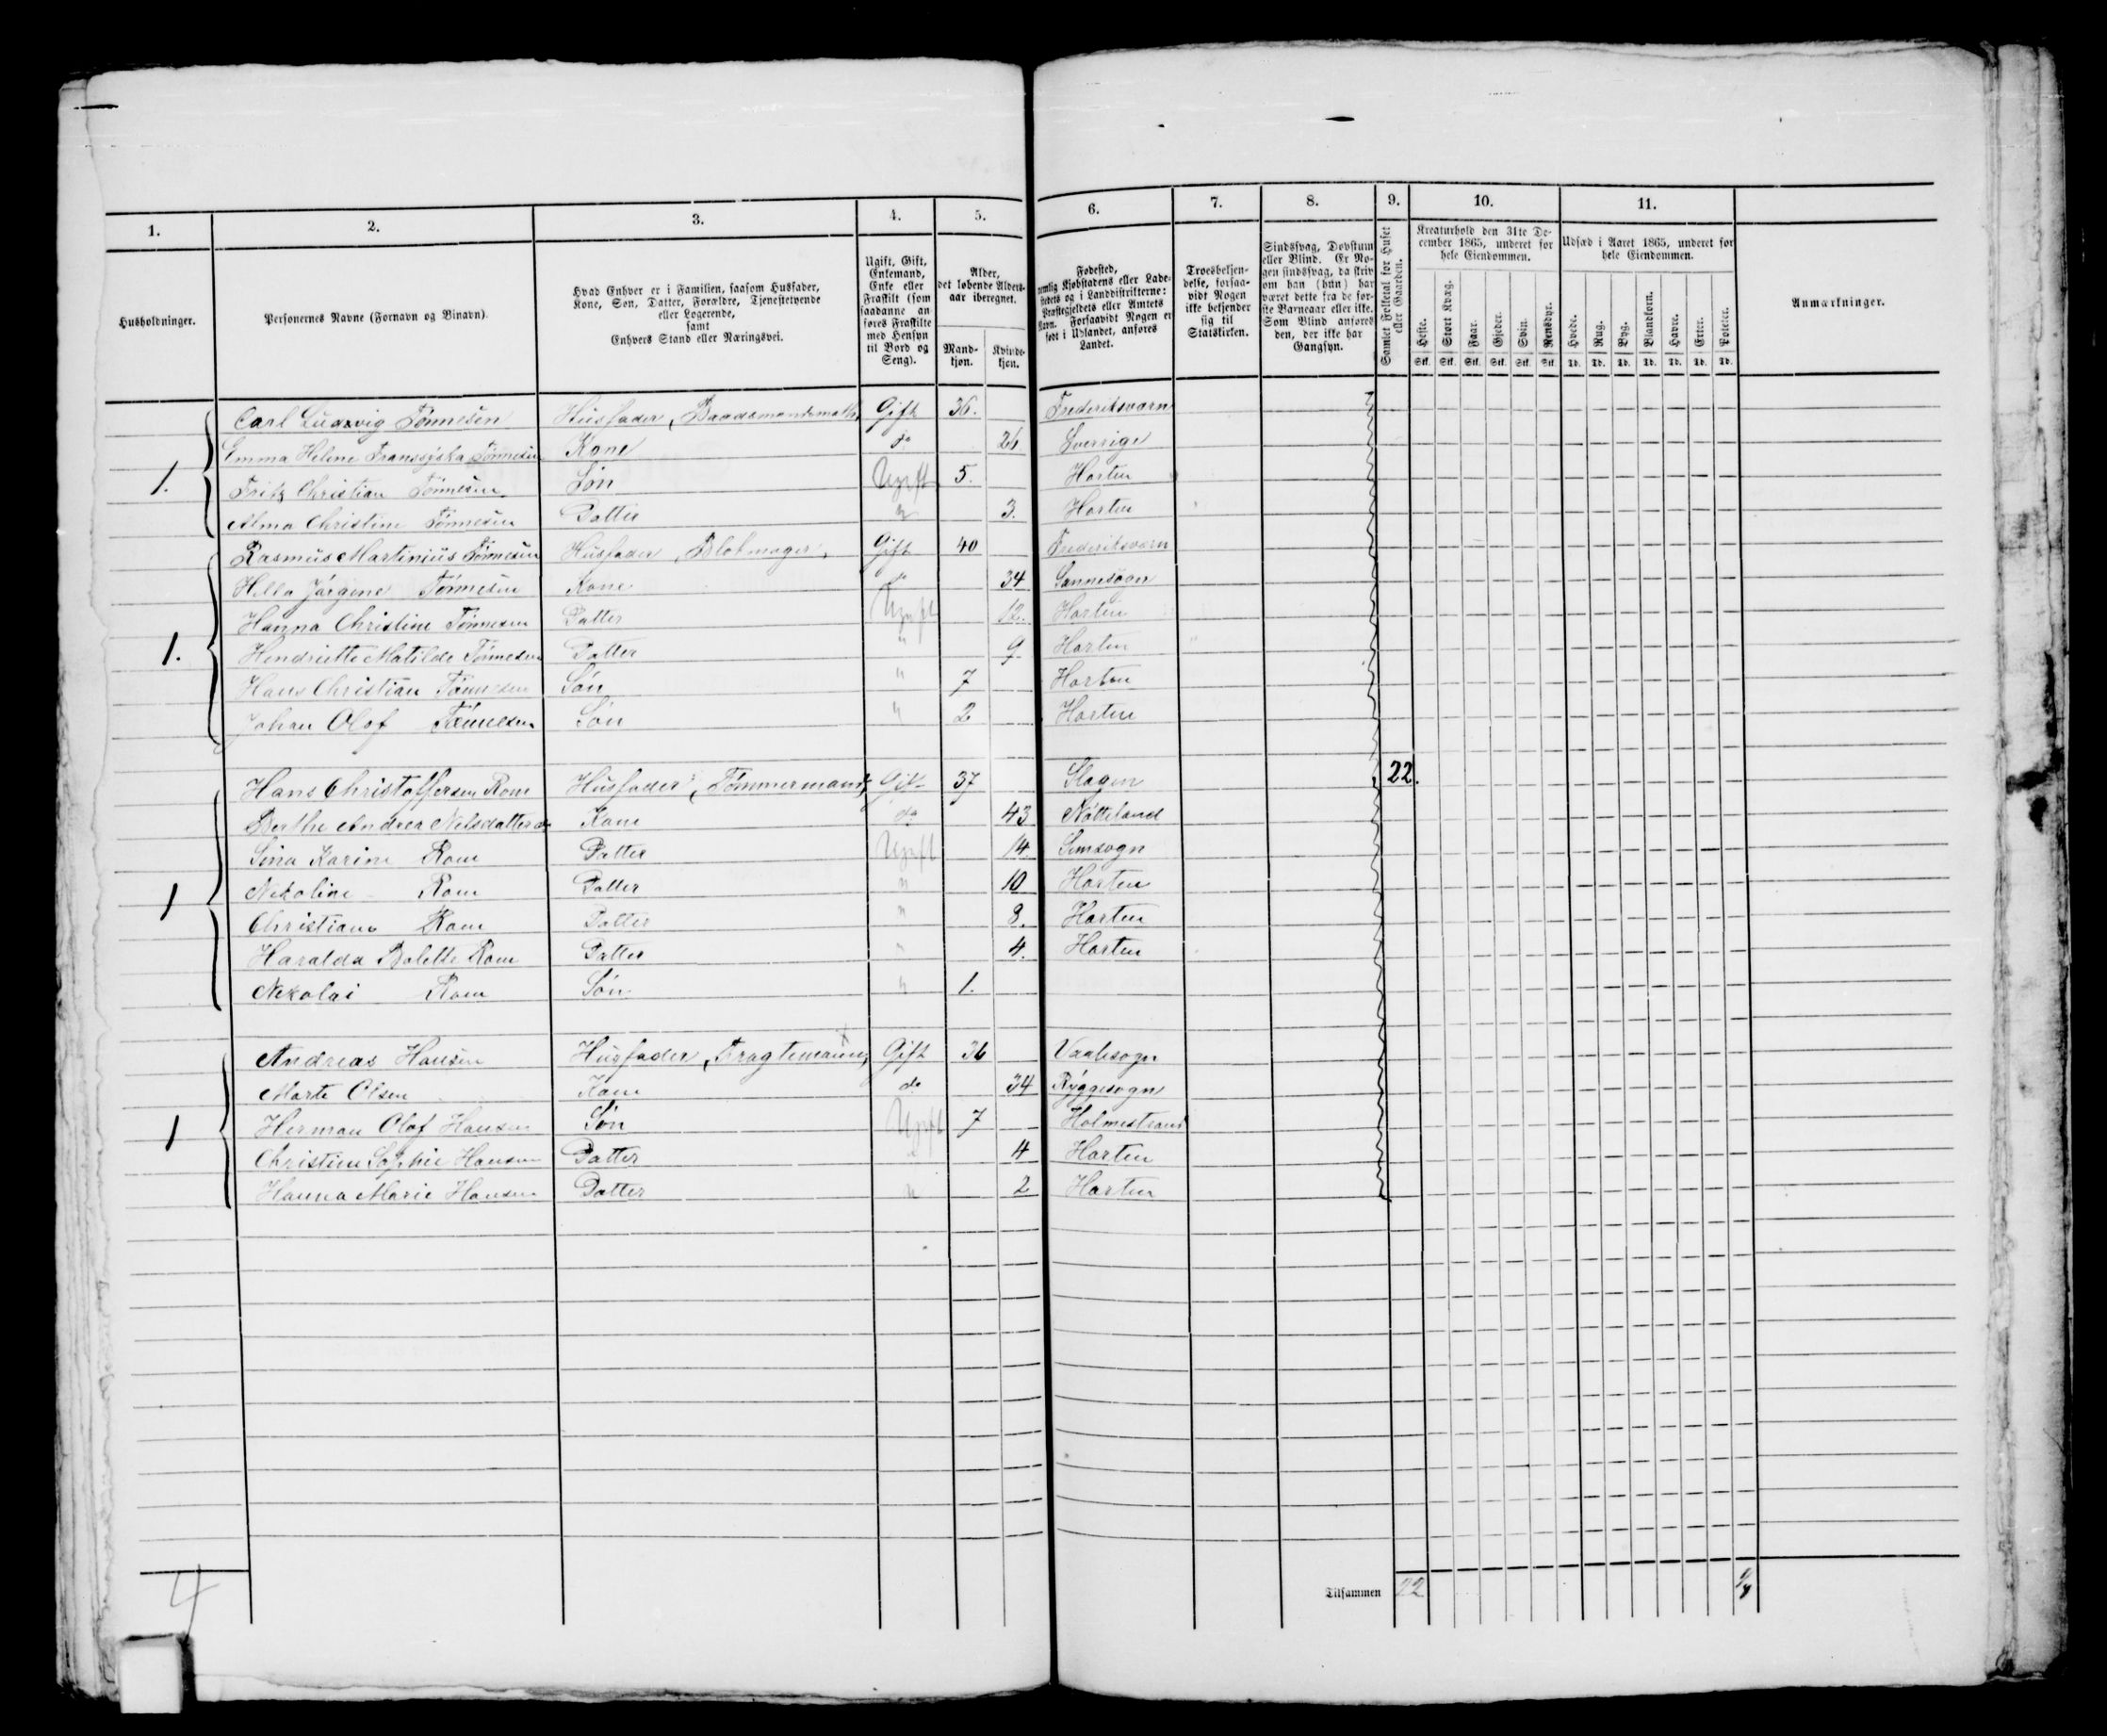 1. 2. 3. 4. 5. 6. 7. 8. 9. 10. 11.
Husholdninger.
Personernes Navne (Fornavn og Binavn).
Hvad Enhver er i Familien, saasom Husfader,
Kone, Søn, Datter, Forældre, Tjenestetyende
eller Logerende,
samt
Enhvers Stand eller Næringsvei.
Ugift, Gift,
Enkemand,
Enke eller
Fraskilt (som
saadanne an-
føres Fraskilte
med Hensyn
til Bord og
Seng).
Alder,
det løbende Alders-
aar iberegnet.
Mand-
kjøn.
Kvinde-
kjøn.
Fødested,
nemlig Kjøbstadens eller Lade-
stedets og i Landdistrikterne:
Præstegjeldets eller Amtets
Navn. Forsaavidt Nogen er
født i Udlandet, anføres
Landet.
Troesbekjen-
delse, forsaa-
vidt Nogen
ikke bekjender
sig til
Statskirken.
Sindssvag, Døvstum
eller Blind. Er No-
gen sindssvag, da skriv
om han (hun) har
været dette fra de før-
ste Barneaar eller ikke.
Som Blind anføres
den, der ikke har
Gangsyn.
Samlet Folketal for Huset
eller Gaarden.
Kreaturhold den 31te De-
cember 1865, underet for
hele Eiendommen.
Heste. Stort Kvæg. Faar. Gjeder. Svin. Rensdyr.
Stk. Stk. Stk. Stk. Stk. Stk.
Udsæd i Aaret 1865, underet for
hele Eiendommen.
Hvede. Rug. Byg. Blandkorn. Havre. Erter. Poteter.
Td. Td. Td. Td. Td. Td. Td.
Anmærkninger.
Carl Ludvig Tönnesen Husfader, Gift 36. Frederiksværn
Emma Helene Franssiska Tönnesen Kone do 26 Sverrige
1. Fritz Christian Tönnesen Sön Ugift 5. Horten
Alma Christine Tönnesen Datter " 3. Horten
Rasmus Martinius Tönnesen Husfader, Blokmager, Gift 40 Frederiksværn
Helle Jörgine Tönnesen Kone do 34 Sannesogn
Hanna Christine Tönnesen Datter Ugift 12. Horten
1. Hendriette Matilde Tönnesen Datter " 9 Horten
Hans Christian Tönnesen Sön " 7 Horten
Johan Olof Tönnesen Sön " 2 Horten
Hans Christoffersen Rom Husfader, Tömmermand, Gift 37 Slagen 22.
Berthe Andrea Nelsdatter do Kone do 43 Nötteland
Sina Karine Rom Datter Ugift 14. Semsogn
1 Nekoline Rom Datter " 10 Horten
Christiane Rom Datter " 8. Horten
Haralda Bolette Rom Datter " 4. Horten
Nekolai Rom Sön " 1.
Andreas Hansen Husfader, Fragtemand, Gift 36 Vaalesogn
Marte Olsen Kone do 34 Ryggesogn
1 Herman Olof Hansen Sön Ugift 7 Holmestrand
Christine Sophie Hansen Datter " 4 Horten
Hanna Marie Hansen Datter " 2 Horten
4 Tilsammen 22